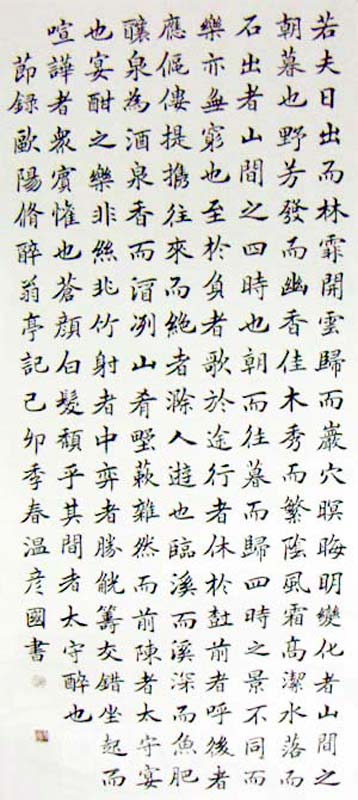 若夫日出而林霏開雲歸而巖穴暝晦明變化者山間之
朝暮也野芳發而幽香佳木秀而繁陰風霜高潔水落而
石出者山間之四時也朝而往暮而歸四時之景不同而
樂亦無窮也至於負者歌於途行者休於樹前者呼後者
應傴僂提攜往來而絶者滁人遊也臨溪而溪深而魚肥
釀泉為酒泉香而酒冽山肴埜蔌雜然而前陳者太守宴
也宴酣之樂非絲非竹射者中弈者勝觥籌交錯坐起而
喧譁者衆賓懽也蒼顏白髮頹乎其間者太守醉也
節錄歐陽脩醉翁亭記己卯季春温彦國書